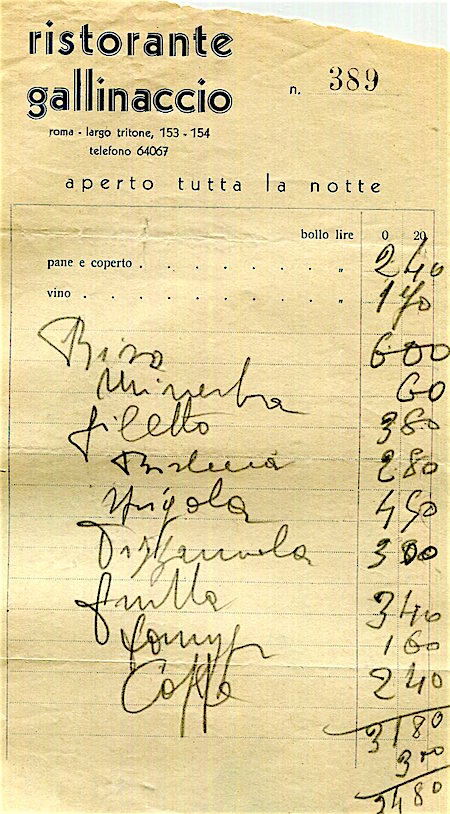 ristorante
gallinaccio
n. 389
roma - largo tritone, 153 - 154
telefono 64067
aperto tutta la notte
bollo lire 0 20
pane e coperto . . . . . . . . " 240
vino . . . . . . . . . . " 170
Riso 600
Minestra 60
filetto 380
Bistecca 280
spigola 450
300
frutta 340
160
Caffè 240
3180
300
3480